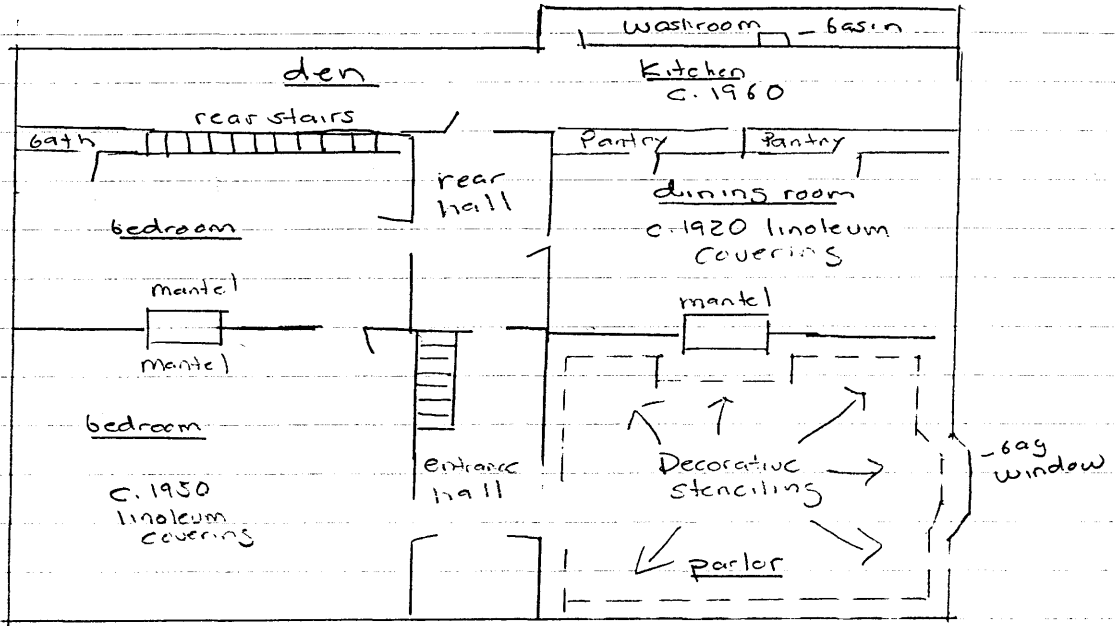 washroom - basin
den
Kitchen
c. 1960
rear stairs
bath
Pantry
Pantry
rear
hall
dining room
c. 1920 linoleum
covering
bedroom
mantel
mantel
mantel
bedroom
c. 1950
linoleum
covering
entrance
hall
Decorative
stenciling
- bay
window
parlor